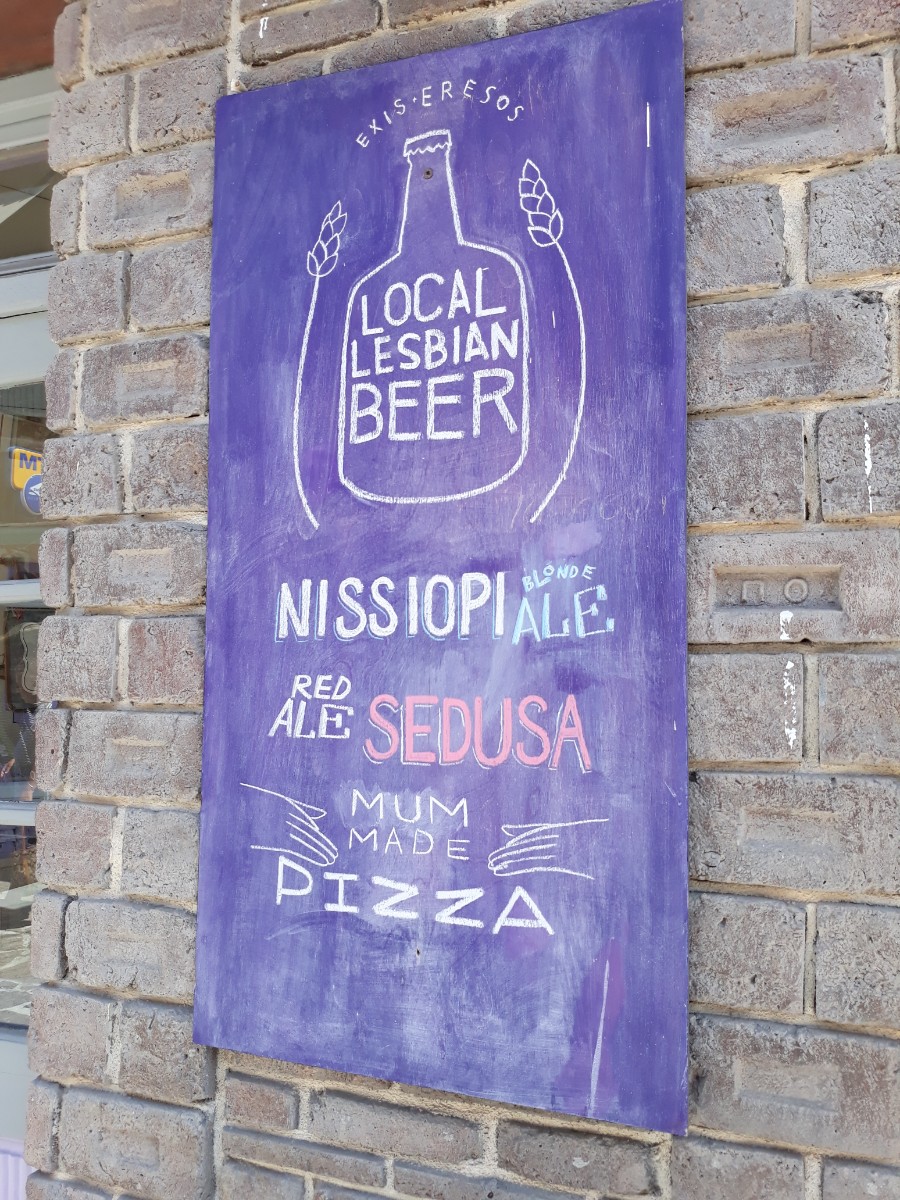 EXIS·ERESOS
LOCAL
LESBIAN
BEER
NISSIOPI BLONDE ALE
RED
ALE SEDUSA
MUM
MADE
PIZZA